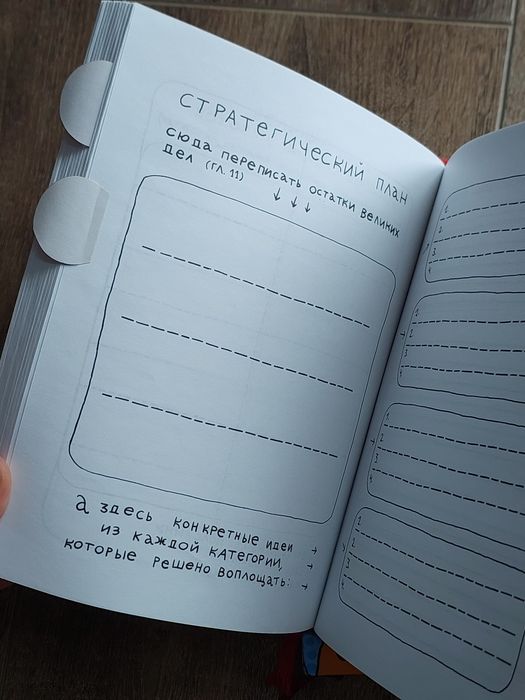 СТРАТЕГИЧЕСКИЙ ПЛАН
СЮДА ПЕРЕПИСАТЬ ОСТАТКИ ВЕЛИКИХ
ДЕЛ (ГЛ. 11) ↓ ↓ ↓
А ЗДЕСЬ КОНКРЕТНЫЕ ИДЕИ →
ИЗ КАЖДОЙ КАТЕГОРИИ, →
КОТОРЫЕ РЕШЕНО ВОПЛОЩАТЬ: →
1
2
3
4
1
2
3
4
1
2
3
4
1
2
3
4